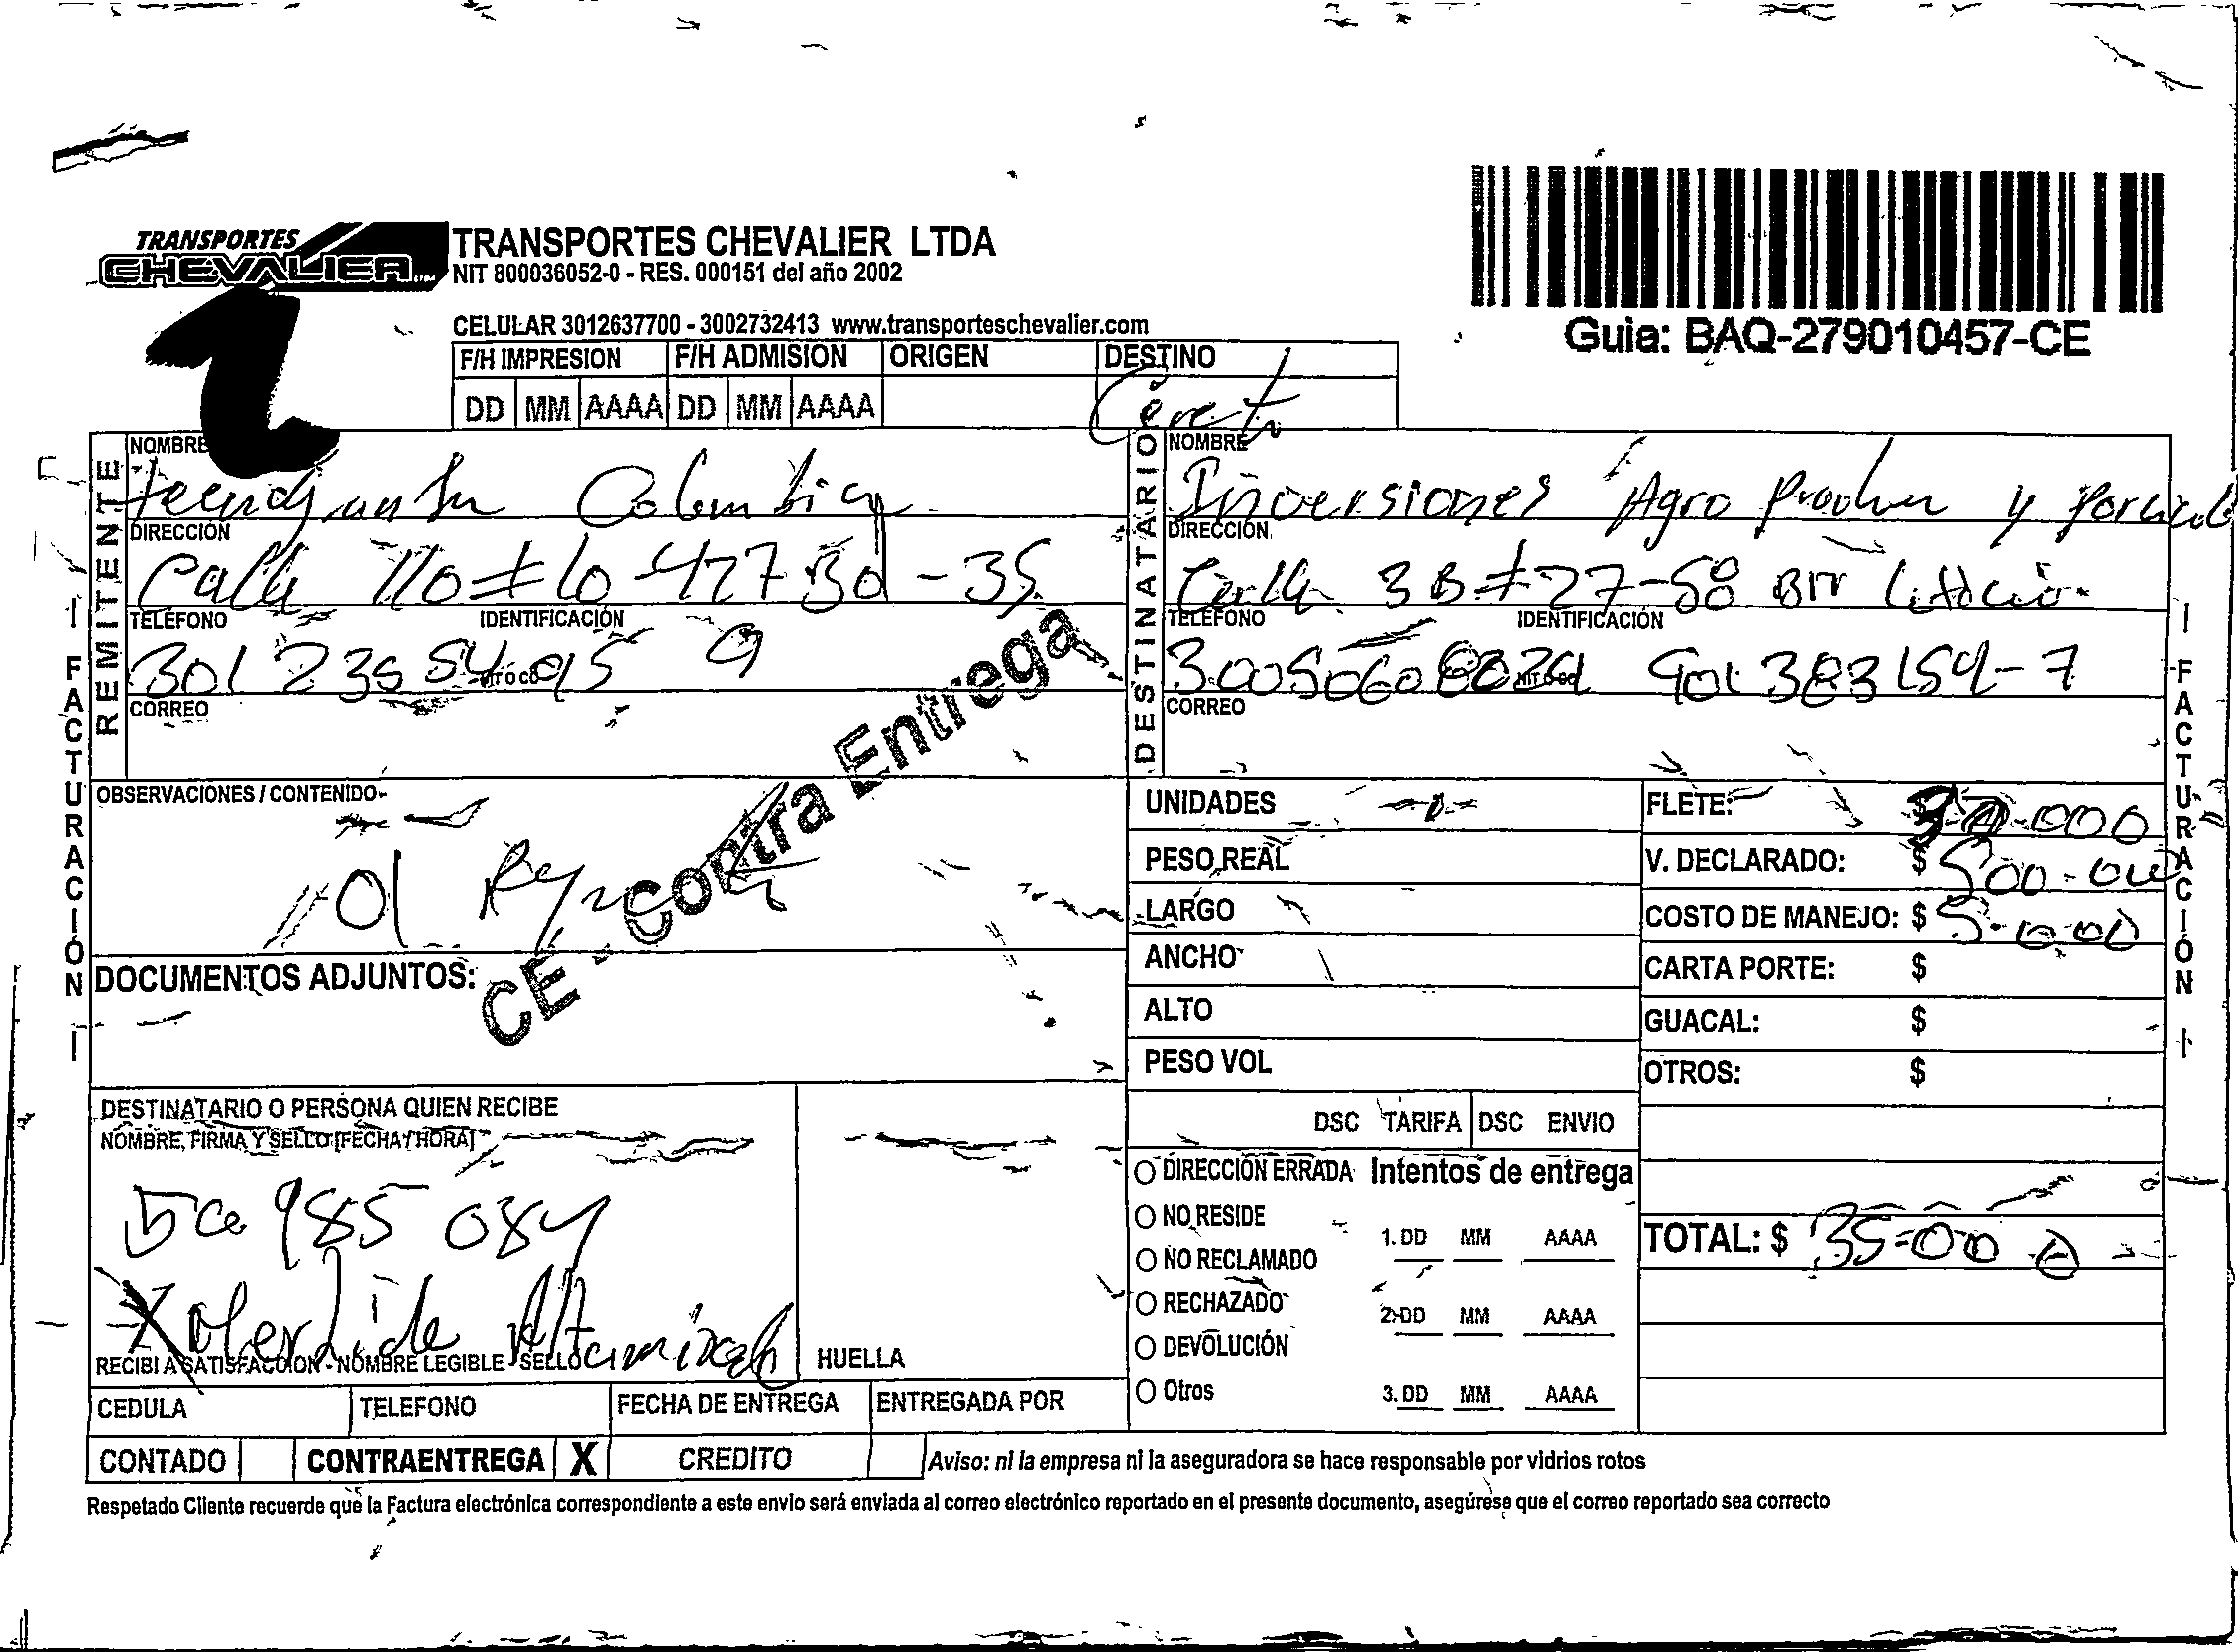 TRANSPORTES
CHEVALIER
TRANSPORTES CHEVALIER LTDA
NIT 800036052-0 - RES. 000151 del año 2002
CELULAR 3012637700 - 3002732413 www.transporteschevalier.com
Guia: BAQ-279010457-CE
F/H IMPRESION F/H ADMISION ORIGEN DESTINO
DD MM AAAA DD MM AAAA
REMITENTE
NOMBRE
Colombia
DIRECCIÓN
Calle 110 # 10-427 Bd - 35
TELEFONO IDENTIFICACIÓN
301 235 54 95 9
CORREO
DESTINATARIO
NOMBRE
Inversiones Agro y
DIRECCIÓN
Calle 3B # 27-58 Brr
TELEFONO IDENTIFICACIÓN
NIT O CC
901383154-7
CORREO
FACTURACIÓN
FACTURACIÓN
OBSERVACIONES / CONTENIDO
01
CE - Contra Entrega
DOCUMENTOS ADJUNTOS:
UNIDADES
PESO REAL
LARGO
ANCHO
ALTO
PESO VOL
DSC TARIFA DSC ENVIO
FLETE: $
V. DECLARADO: $ 500-000
COSTO DE MANEJO: $ 5-000
CARTA PORTE: $
GUACAL: $
OTROS: $
TOTAL: $ 35-000
DESTINATARIO O PERSONA QUIEN RECIBE
NOMBRE, FIRMA Y SELLO [FECHA Y HORA]
985 084
RECIBI A SATISFACCION - NOMBRE LEGIBLE - SELLO
HUELLA
DIRECCIÓN ERRADA Intentos de entrega
NO RESIDE
1. DD MM AAAA
NO RECLAMADO
RECHAZADO
2. DD MM AAAA
DEVOLUCIÓN
Otros
3. DD MM AAAA
CEDULA TELEFONO FECHA DE ENTREGA ENTREGADA POR
CONTADO CONTRAENTREGA X CREDITO
Aviso: ni la empresa ni la aseguradora se hace responsable por vidrios rotos
Respetado Cliente recuerde que la Factura electrónica correspondiente a este envio será enviada al correo electrónico reportado en el presente documento, asegúrese que el correo reportado sea correcto